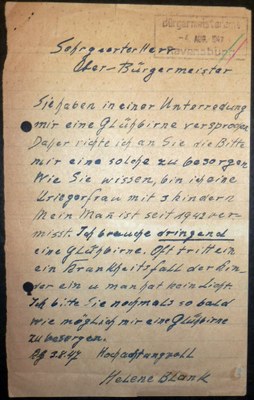 Bürgermeisteramt
4. Aug. 1947
Ravensburg
Sehrgeerter Herr
Ober-Bürgermeister
Sie haben in einer Unterredung
mir eine Glühbirne versprochen
Daher richte ich an Sie die Bitte
mir eine solche zu besorgen
Wie Sie wissen, bin ich eine
Kriegerfrau mit 3 Kindern
Mein Man ist seit 1942 ver-
misst. Ich brauche dringend
eine Glühbirne. Oft tritt ein
ein Krankheitsfall der Kin-
der ein u man hat kein Licht
Ich bitte Sie nochmals so bald
wie möglich mir eine Glühbirne
zu besorgen.
3.8.47 Hochachtungsvoll
Helene Blank